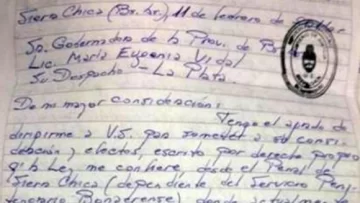 Sierra Chica (Bs. As.) 11 de febrero de
Sra. Gobernadora de la Prov. de Bs
Lic. María Eugenia Vidal
Su Despacho - La Plata
De mi mayor consideración:
Tengo el agrado de
dirigirme a V.S. para someter a su consi-
deración y efectos, escrito por derecho propio
q' la Ley me confiere, desde el Penal de
Sierra Chica (dependiente del Servicio Peni-
tenciario Bonaerense) donde actualme